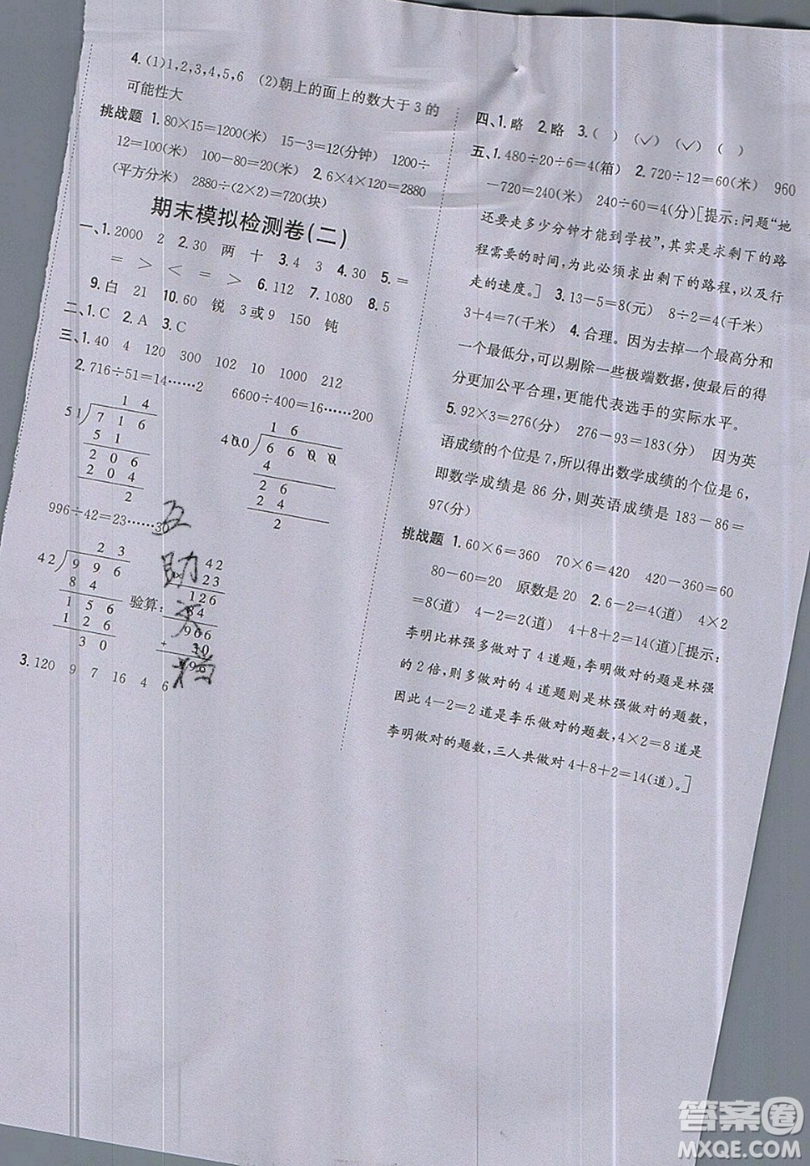 4. (1)1,2,3,4,5,6 (2)朝上的面上的数大于3的
可能性大
挑战题 1. 80×15=1200(米) 15-3=12(分钟) 1200÷
12=100(米) 100-80=20(米) 2. 6×4×120=2880
(平方分米) 2880÷(2×2)=720(块)
期末模拟检测卷(二)
一、1. 2000 2 2. 30 两 十 3. 4 3 4. 30 5. =
= > < = > 6. 112 7. 1080 8. 5
9. 白 21 10. 60 锐 3或9 150 钝
二、1. C 2. A 3. C
三、1. 40 4 120 300 102 10 1000 212
2. 716÷51=14……2 6600÷400=16……200
1 4
51 7 1 6
5 1
2 0 6
2 0 4
2
1 6
400 6 6 0 0
4
2 6
2 4
2
996÷42=23……30
2 3
42 9 9 6
8 4
1 5 6
1 2 6
3 0
验算:
42
23
126
84
966
+ 30
996
互
助
文
档
3. 120 9 7 16 4 6
四、1. 略 2. 略 3. ( ) (√) (√) ( )
五、1. 480÷20÷6=4(箱) 2. 720÷12=60(米) 960
-720=240(米) 240÷60=4(分)[提示:问题“她
还要走多少分钟才能到学校”,其实是求剩下的路
程需要的时间,为此必须求出剩下的路程,以及行
走的速度。] 3. 13-5=8(元) 8÷2=4(千米)
3+4=7(千米) 4. 合理。因为去掉一个最高分和
一个最低分,可以剔除一些极端数据,使最后的得
分更加公平合理,更能代表选手的实际水平。
5. 92×3=276(分) 276-93=183(分) 因为英
语成绩的个位是7,所以得出数学成绩的个位是6,
即数学成绩是86分,则英语成绩是183-86=
97(分)
挑战题 1. 60×6=360 70×6=420 420-360=60
80-60=20 原数是20 2. 6-2=4(道) 4×2
=8(道) 4-2=2(道) 4+8+2=14(道)[提示:
李明比林强多做对了4道题,李明做对的题数是林强
的2倍,则多做对的4道题则是林强做对的题数,
因此4-2=2道是李乐做对的题数,4×2=8道是
李明做对的题数,三人共做对4+8+2=14(道)。]
答案圈
MXQE.COM